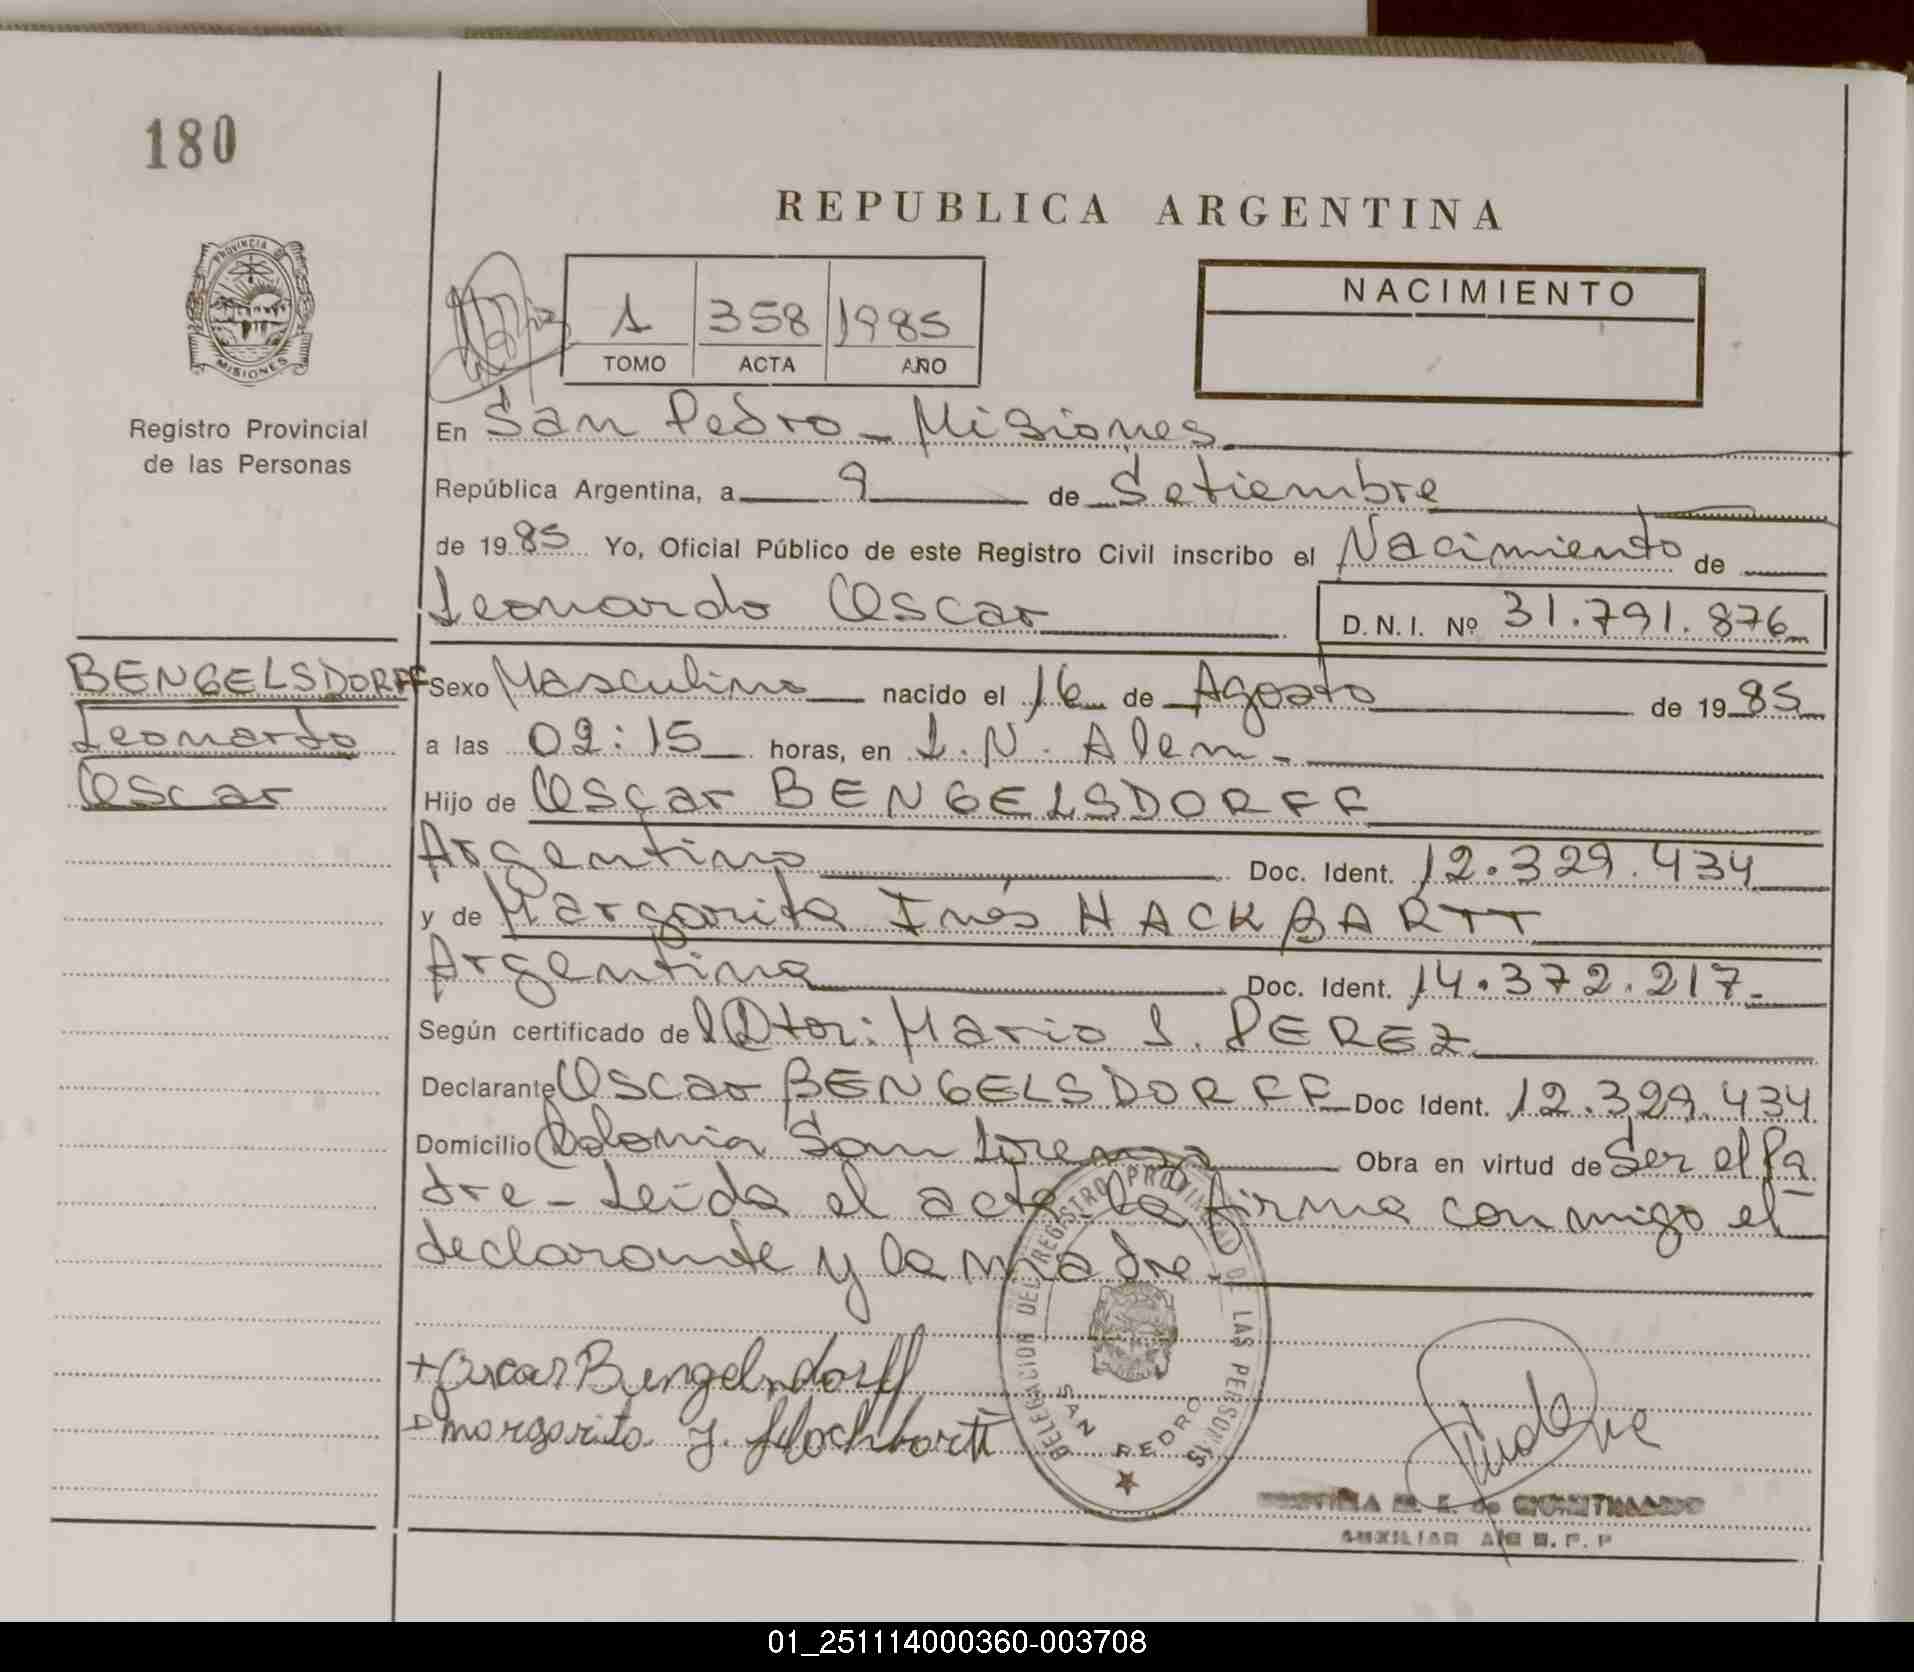 180
REPUBLICA ARGENTINA
PROVINCIA DE
MISIONES
Registro Provincial
de las Personas
1 358 1985
TOMO ACTA AÑO
NACIMIENTO
En San Pedro - Misiones
República Argentina, a 9 de Setiembre
de 1985 Yo, Oficial Público de este Registro Civil inscribo el Nacimiento de
Leonardo Oscar D.N.I. Nº 31.791.876
BENGELSDORFF
Leonardo
Oscar
Sexo Masculino nacido el 16 de Agosto de 1985
a las 02:15 horas, en L.N. Alem -
Hijo de Oscar BENGELSDORFF
Argentino Doc. Ident. 12.329.434
y de Margarita Inés HACKBARTT
Argentina Doc. Ident. 14.372.217-
Según certificado del Dtor: Mario L. PEREZ
Declarante Oscar BENGELSDORFF Doc Ident. 12.329.434
Domicilio Colonia San Lorenzo Obra en virtud de Ser el Pa
dre - Leída el acta la firma conmigo el
declarante y la madre -
DELEGACION DEL REGISTRO PROVINCIAL DE LAS PERSONAS
SAN PEDRO
+ Oscar Bengelsdorff
+ margarita I. Hackbartt
AUXILIAR
01_251114000360-003708